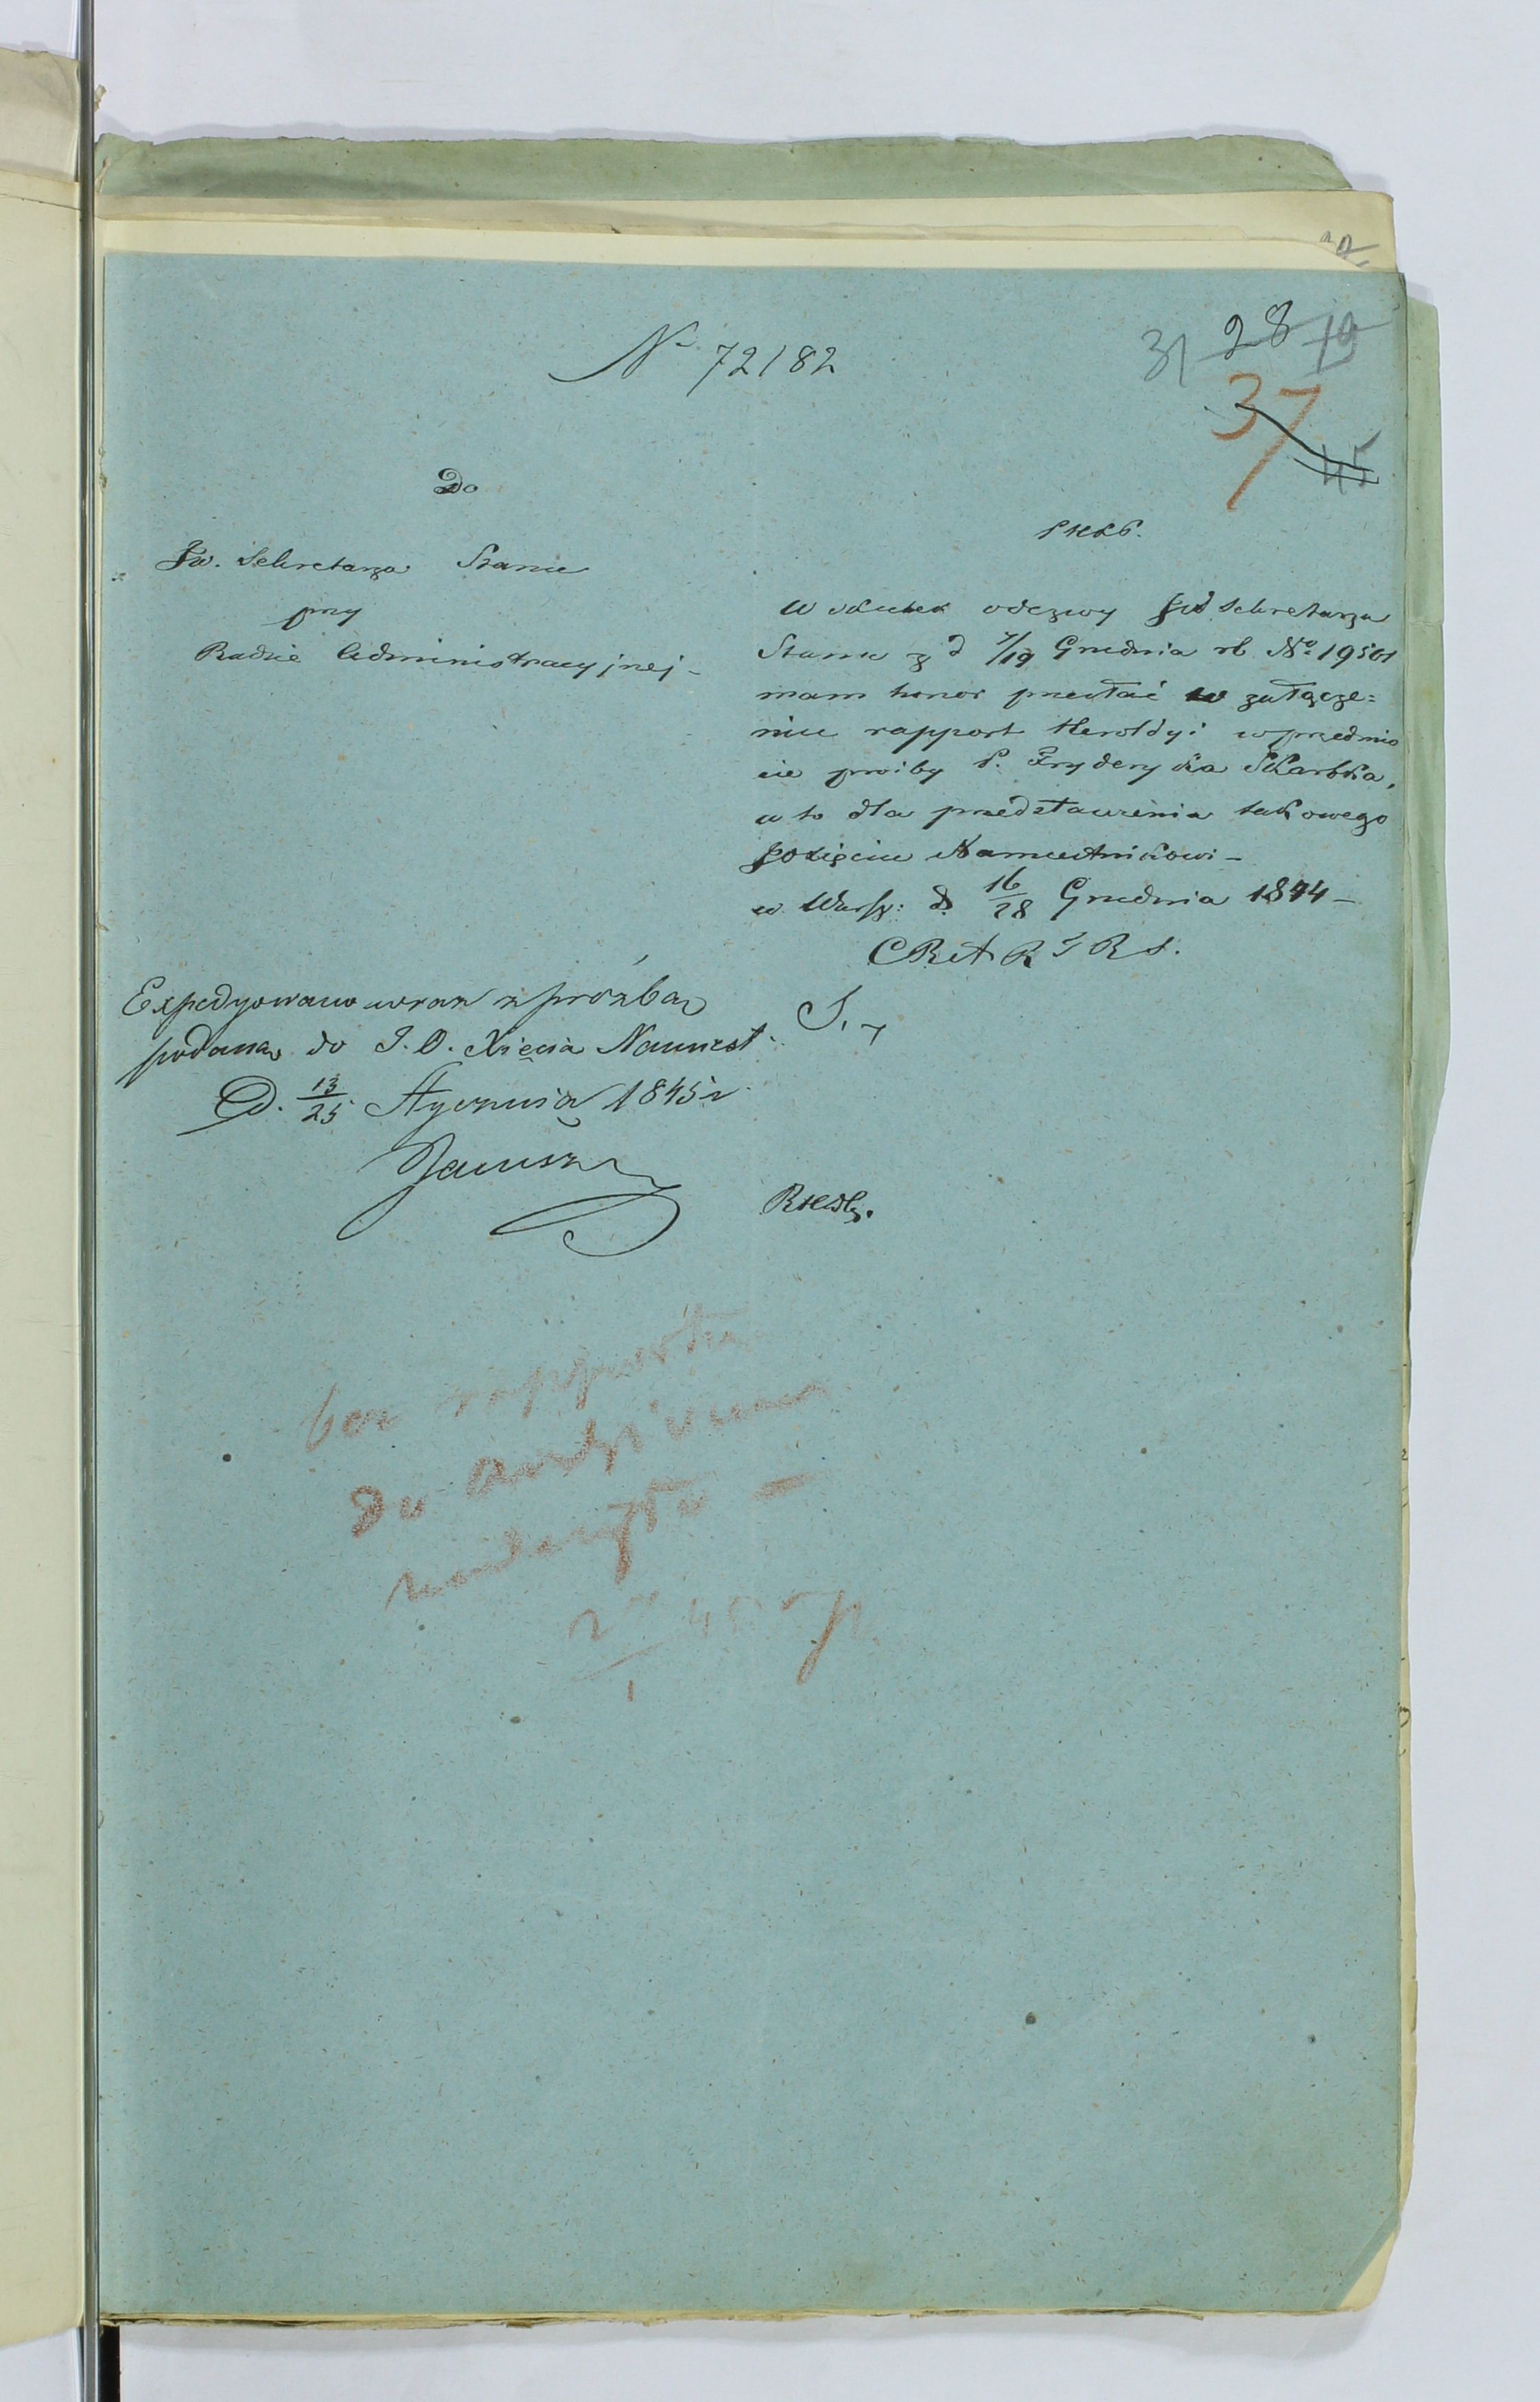 No 72182
31 28 19
37
45
Do
JW. Sekretarza Stanu
przy
Radzie Administracyjnej -
W skutek odezwy JW Sekretarza
Stanu z d 7/19 Grudnia rb No 19501
mam honor przesłać w załącze=
niu rapport Heroldyi w przedmio
cie prośby P. Fryderyka Skarbka,
a to dla przedstawienia takowego
JOXięciu Namiestnikowi -
w Warsz: d 16/28 Grudnia 1844 -
Expedyowano wraz z prośbą
podaną do J.O. Xięcia Namiest.
D. 13/25 Stycznia 1845 r
Janusz
bez rapportu
do archiwum